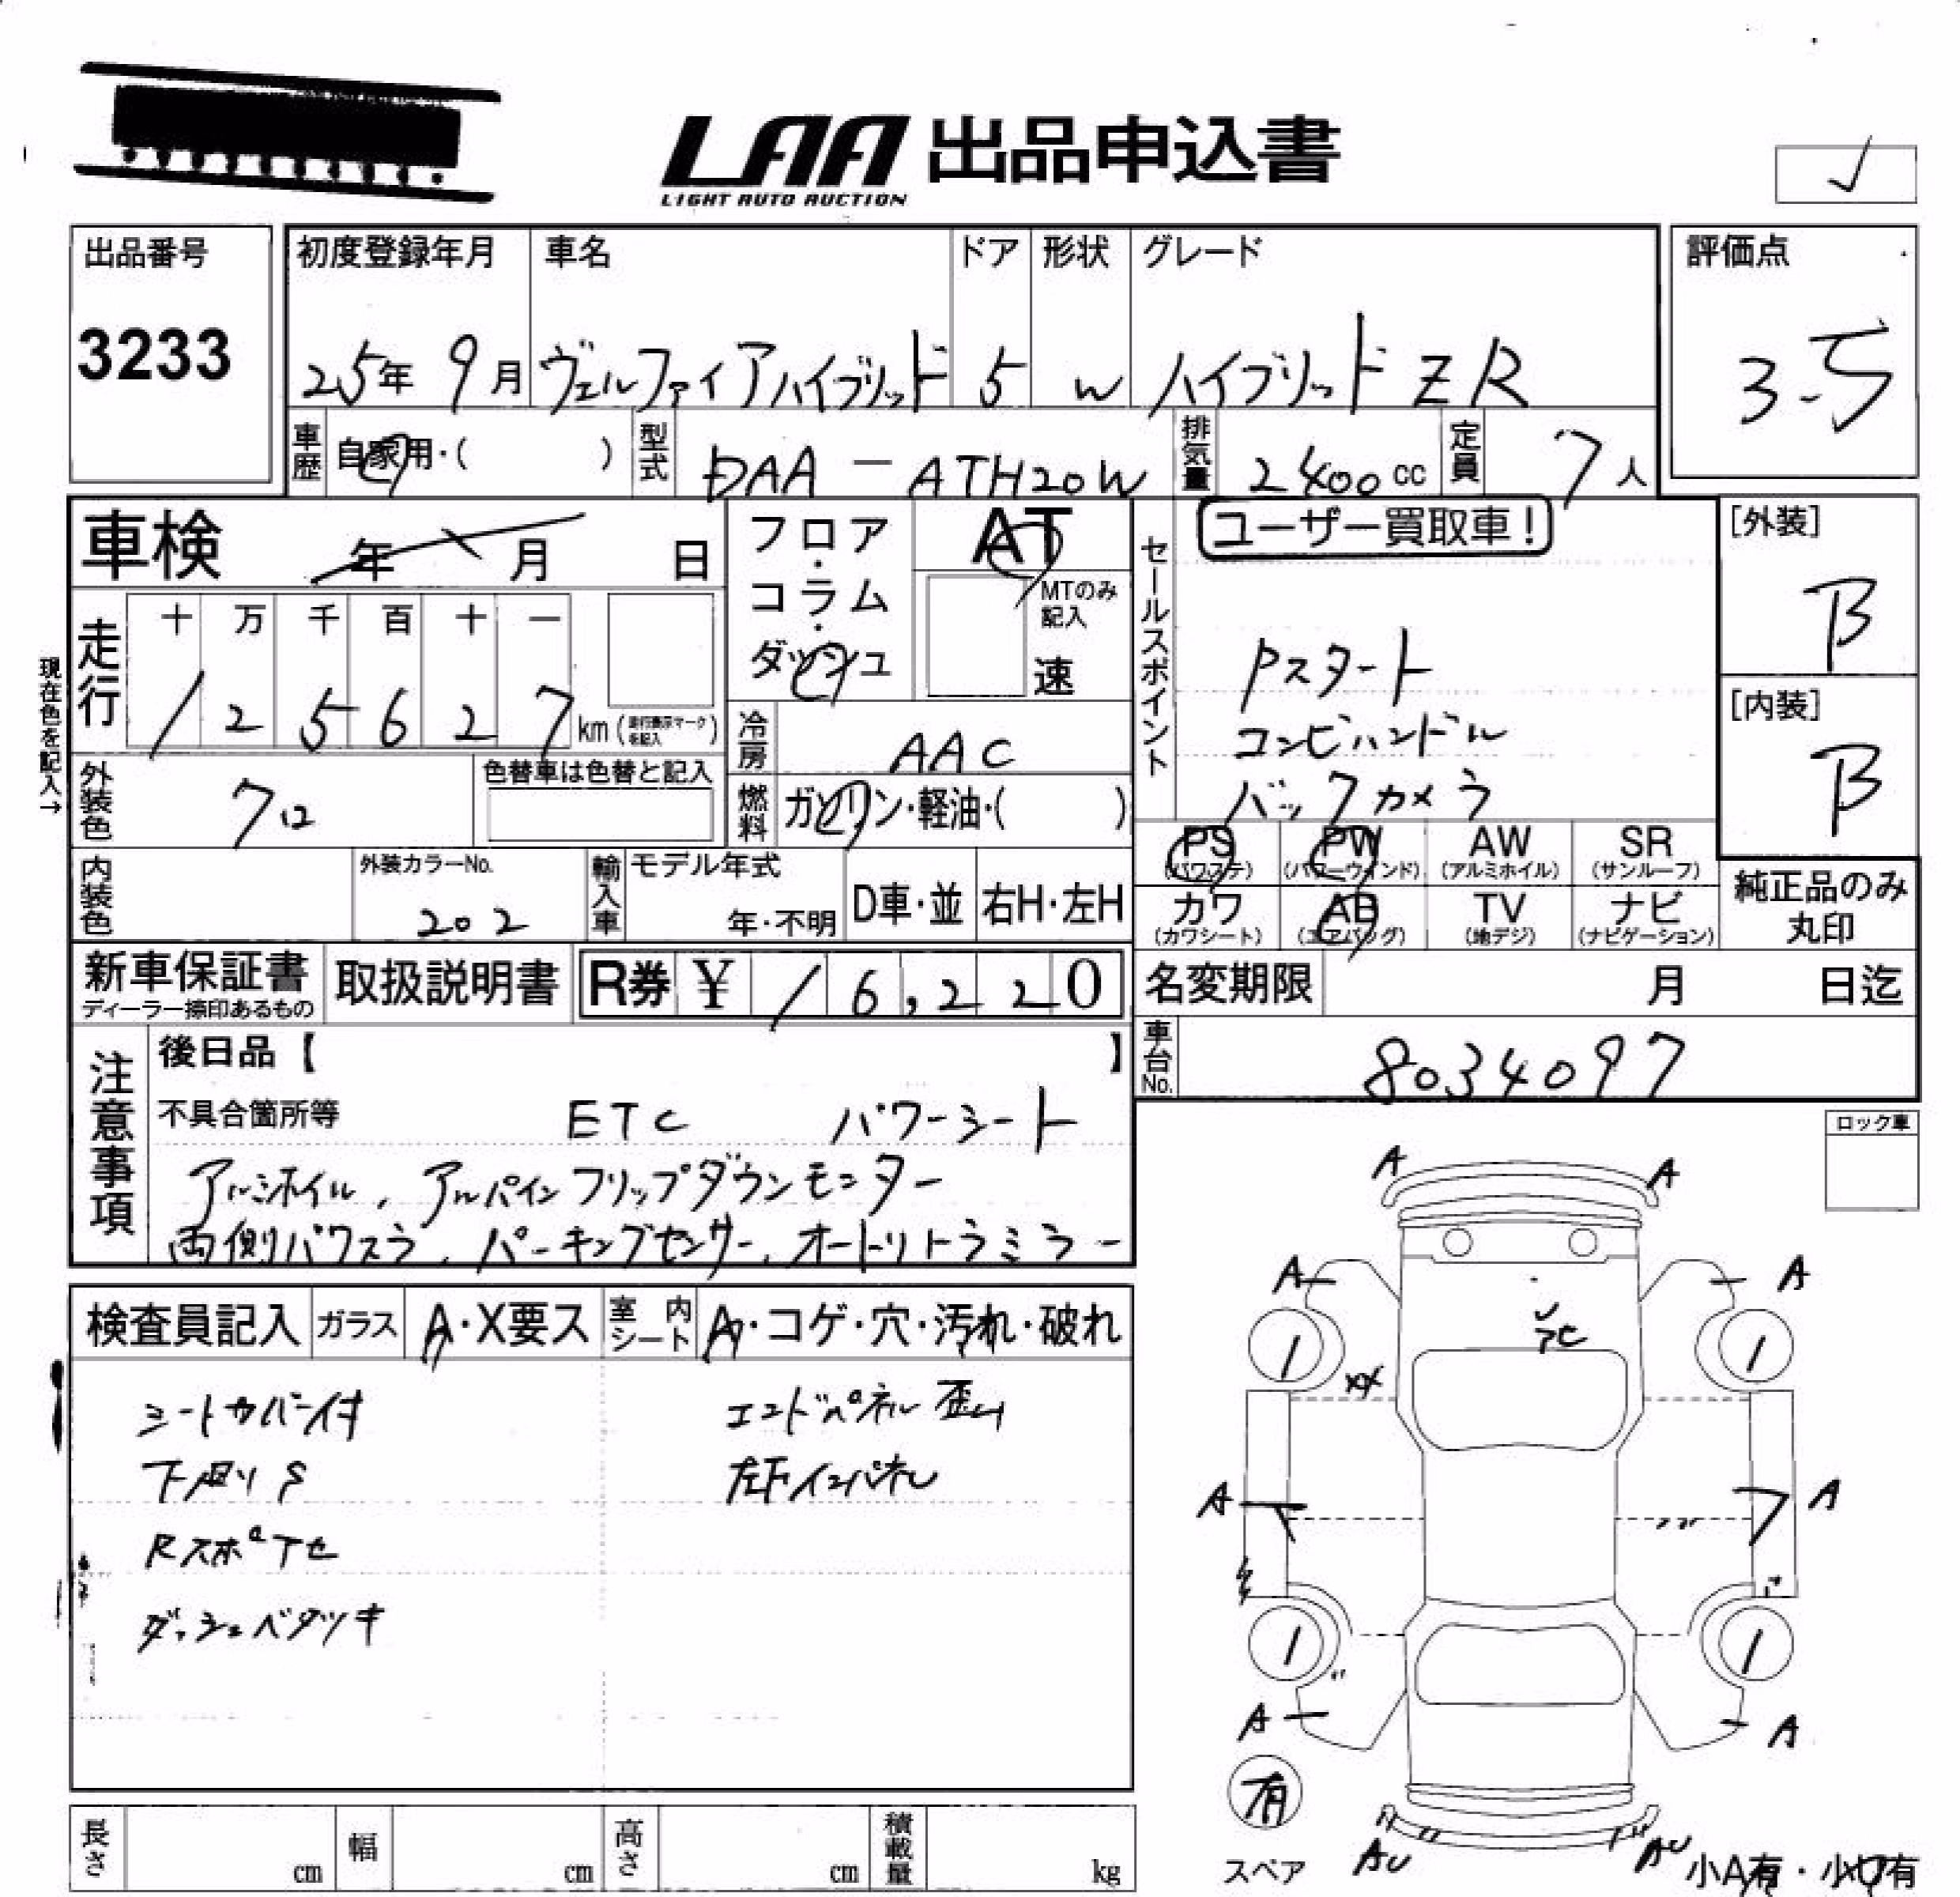 LAA 出品申込書
LIGHT AUTO AUCTION
出品番号
3233
初度登録年月 車名 ドア 形状 グレード
25年 9月 ヴェルファイアハイブリッド 5 W ハイブリッド ZR
評価点
3.5
車歴 自家用・( ) 型式 DAA-ATH20W 排気量 2400cc 定員 7人
車検 年 月 日
フロア・コラム・ダッシュ
AT
MTのみ記入
速
走行 十 万 千 百 十 一
1 2 5 6 2 7 km (走行表示マークを記入)
現在色を記入→
外装色 クロ
色替車は色替と記入
冷房 AAC
燃料 ガソリン・軽油・( )
内装色
外装カラーNo.
202
輸入車 モデル年式
年・不明 D車・並 右H・左H
セールスポイント
ユーザー買取車!
Pスタート
コンビハンドル
バックカメラ
[外装]
B
[内装]
B
PS (パワステ) PW (パワーウインド) AW (アルミホイル) SR (サンルーフ)
カワ (カワシート) AB (エアバッグ) TV (地デジ) ナビ (ナビゲーション)
純正品のみ
丸印
新車保証書
ディーラー捺印あるもの
取扱説明書
R券 ¥ 16,220
名変期限 月 日迄
車台No. 8034097
注意事項
後日品【 】
不具合箇所等 ETC パワーシート
アルミホイル、アルパインフリップダウンモニター
両側パワスラ、パーキングセンサー、オートリトラミラー
ロック車
検査員記入 ガラス A・X要ス 室内シート A・コゲ・穴・汚れ・破れ
シートカバー付 エンドパネル歪ム
下廻りS 左下インパネル
Rスポイラーアセ
ダッシュベタツキ
A A
A A
XX
A A
A A
1 1
1 1
有
スペア
AU AU
小A有・小U有
長さ cm 幅 cm 高さ cm 積載量 kg